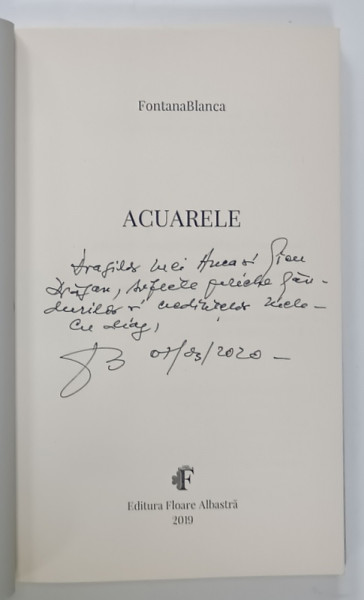 FontanaBlanca
ACUARELE
Dragilor mei Anca și Stan
Drăgan, suflete pereche gân-
durilor și credințelor mele
Cu drag,
FB 07/03/2020 -
F
Editura Floare Albastră
2019